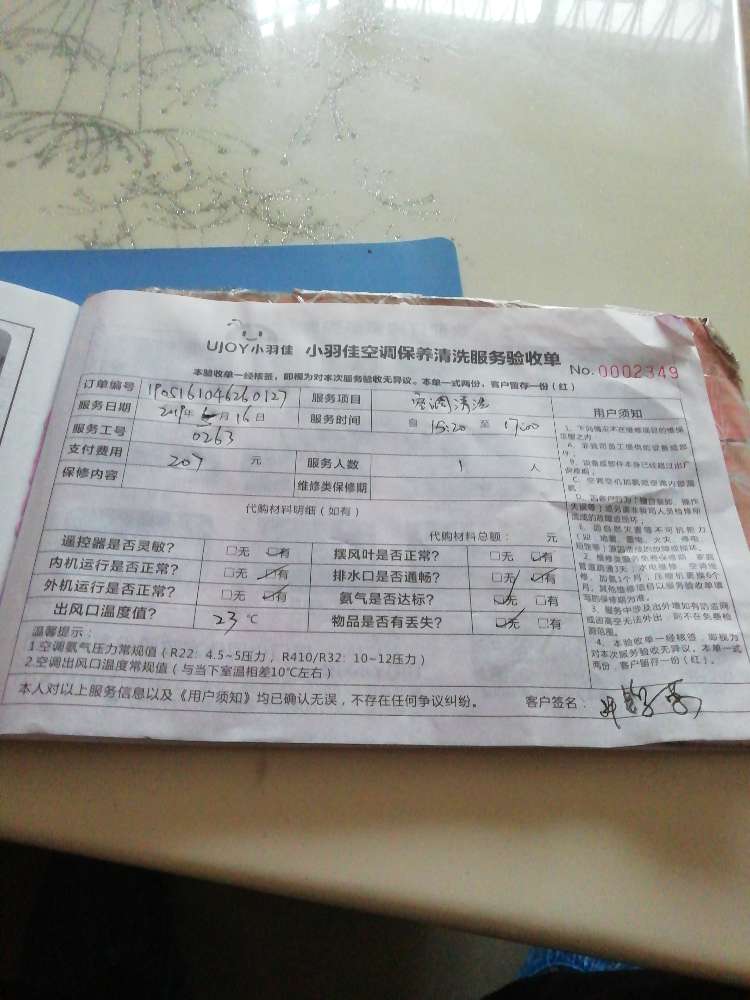 UJOY小羽佳 小羽佳空调保养清洗服务验收单 No.0002349
本验收单一经核签，即视为对本次服务验收无异议。本单一式两份，客户留存一份（红）
订单编号 1905161046260127 服务项目 空调清洗
服务日期 2019年 月16日 服务时间 自 15:20 至 17:00
服务工号 0263
支付费用 207 元 服务人数 1 人
保修内容 维修类保修期
代购材料明细（如有）
代购材料总额： 元
遥控器是否灵敏？ □无 □有 摆风叶是否正常？ □无 □有
内机运行是否正常？ □无 □有 排水口是否通畅？ □无 □有
外机运行是否正常？ □无 □有 氨气是否达标？ □无 □有
出风口温度值？ 23 ℃ 物品是否有丢失？ □无 □有
温馨提示：
1.空调氨气压力常规值（R22：4.5~5压力， R410/R32：10~12压力）
2.空调出风口温度常规值（与当下室温相差10℃左右）
本人对以上服务信息以及《用户须知》均已确认无误，不存在任何争议纠纷。 客户签名：
用户须知
1、下列情况不在维修项目的维保
范围之内
A、非我司员工提供的设备或部
件；
4、本验收单一经核签，即视为
对本次服务验收无异议。本单一式
两份，客户留存一份（红）。